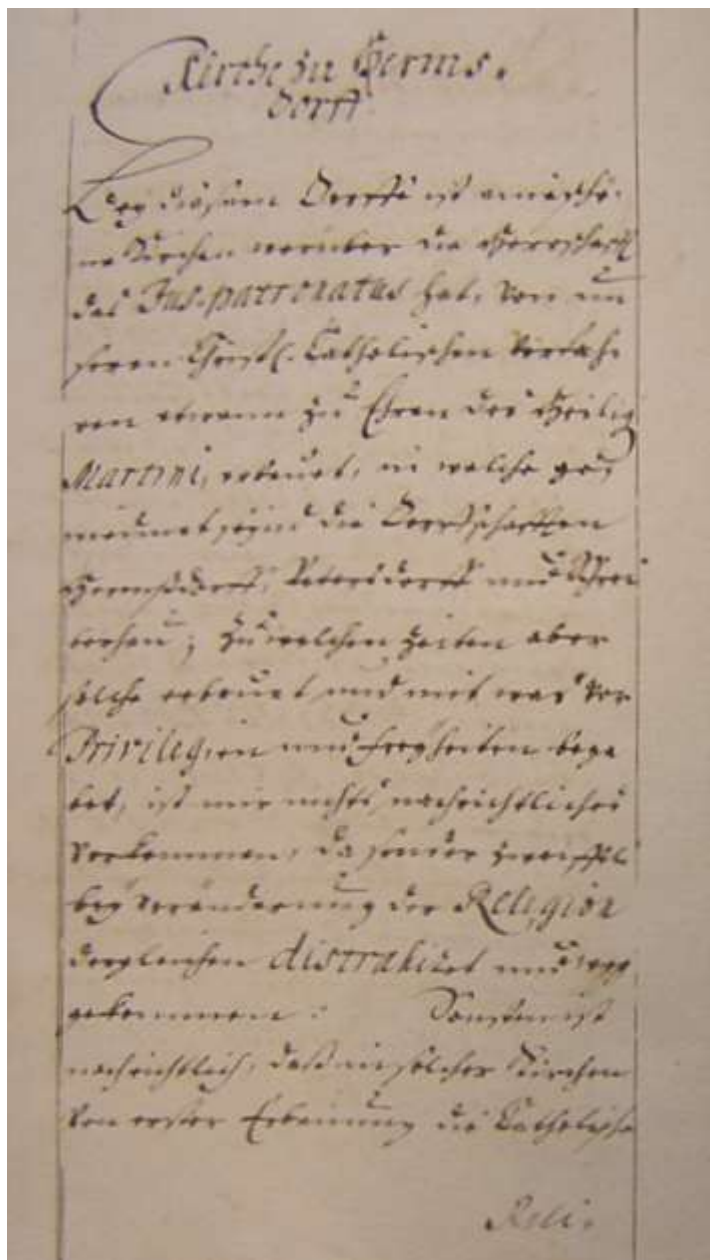 Kirche zu Herms-
dorff
Bey diesem Dorffe ist eine schö-
ne Kirchen worüber die Herrschafft
das Jus patronatus hat, von un
seren Christl. Catholischen Vorfah-
ren etwann zu Ehren des Heilig
Martini, erbauet, in welche ge
wiedmet seynd die Dorffschafften
Hermsdorff, Petersdorff und Schrei
berhau; zu welchen Zeiten aber
solche erbauet und mit was vor
Privilegien und Freyheiten bega
bet, ist mir nichts nachrichtliches
vorkommen, da sonder Zweiffel
bey Veränderung der Religion
dergleichen distrahiret und weg
gekommen: Sonsten ist
nachrichtlich, daß in solcher Kirchen
von erster Erbauung die Catholische
Reli-